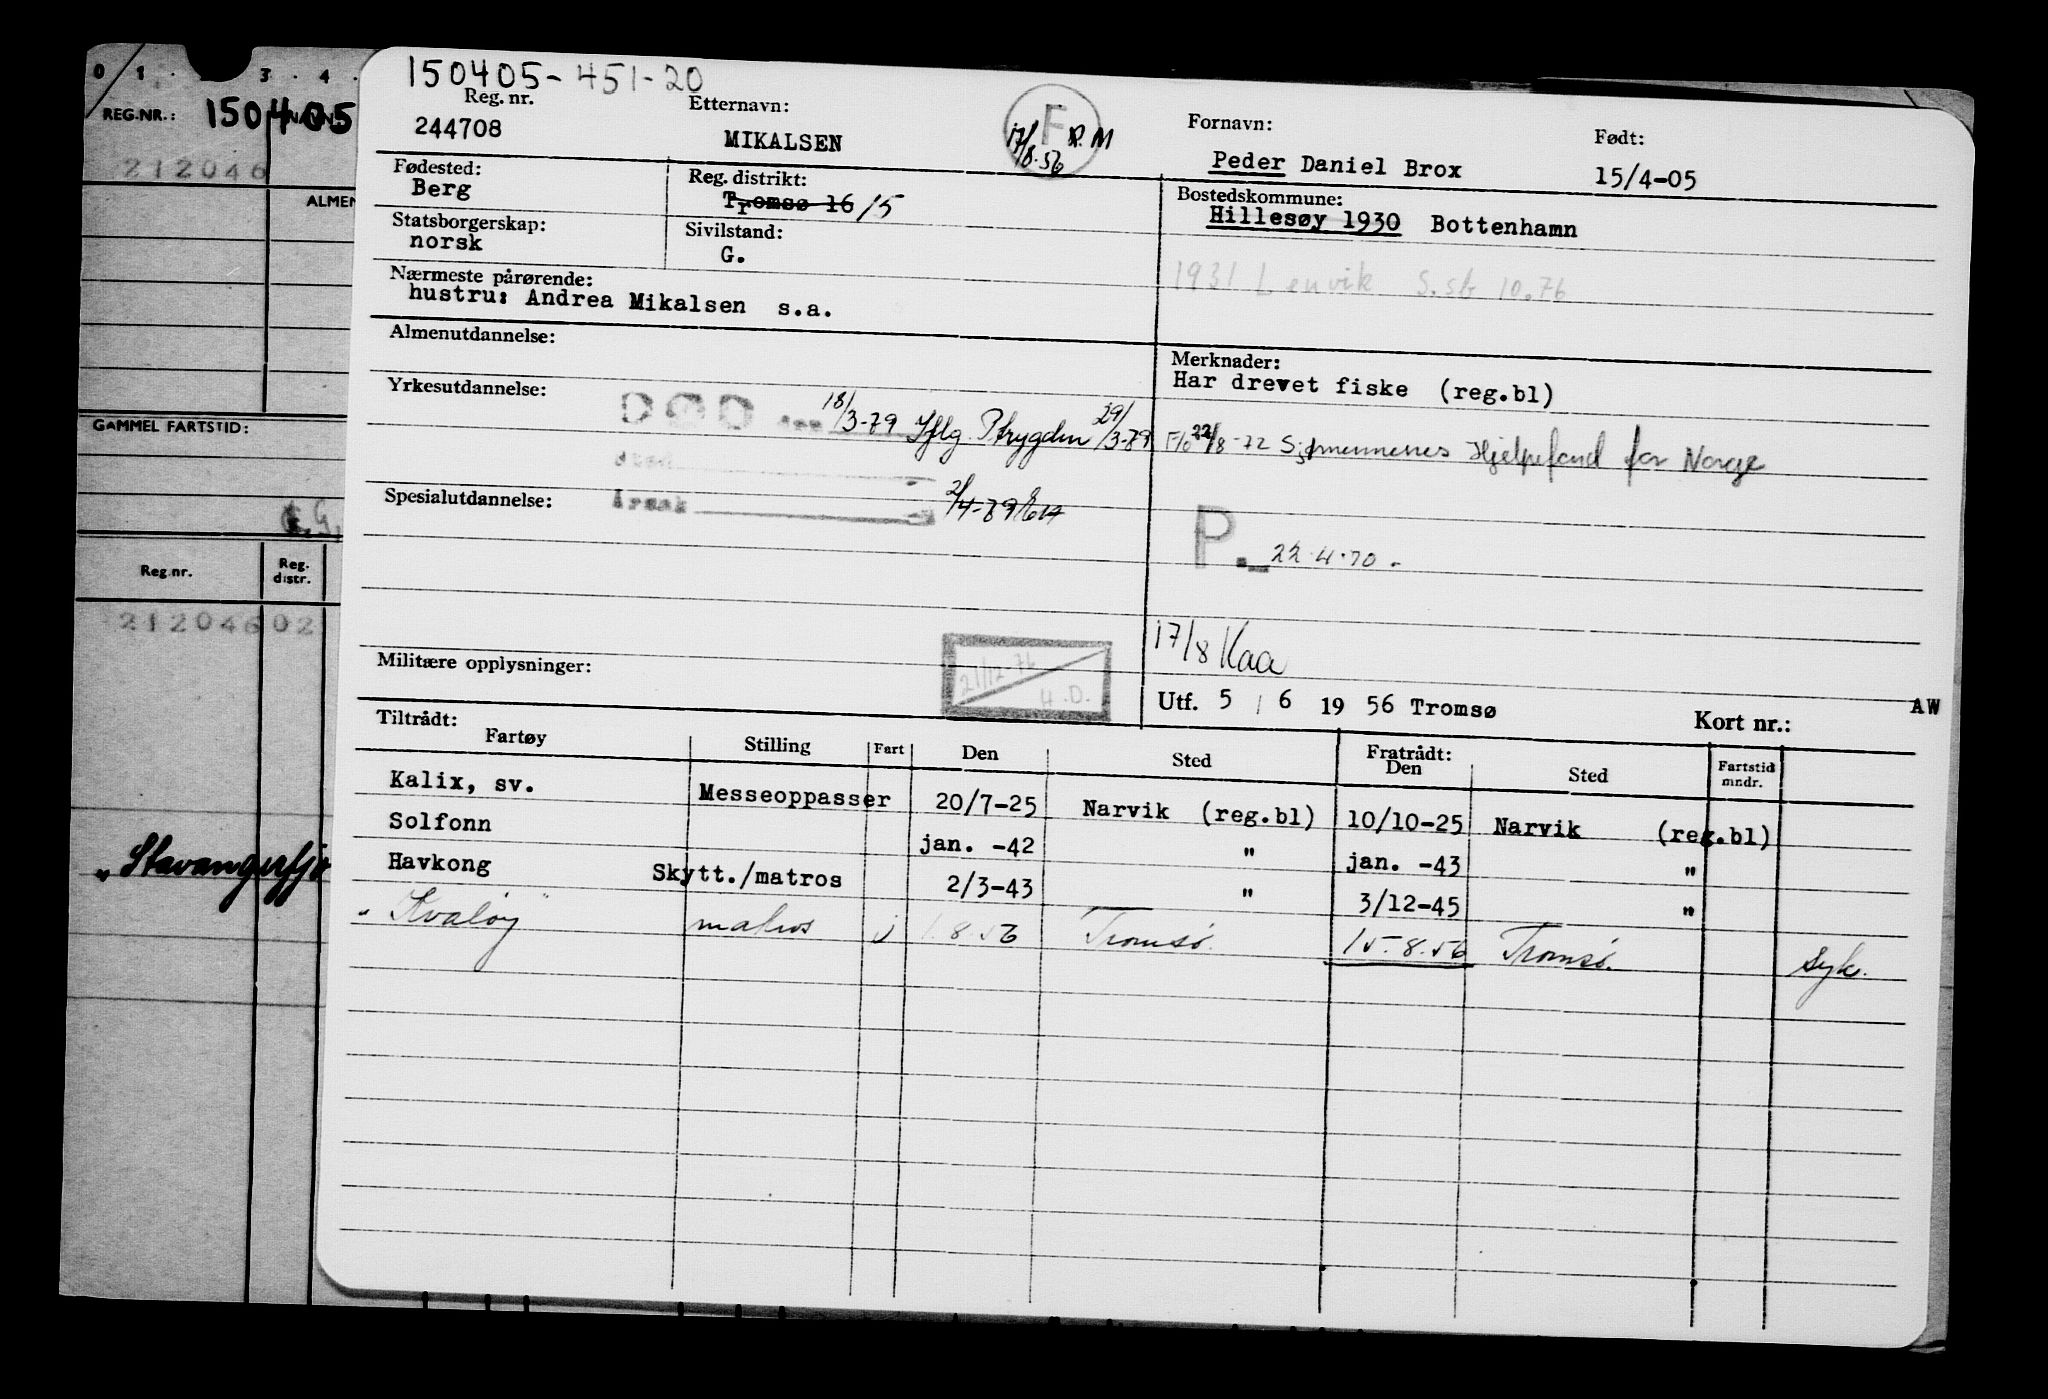 0 1 . 3 . 4 .
REG.NR.: 150405
212046
ALMEN
GAMMEL FARTSTID:
Reg.nr. Reg. distr.
212046 02
"Stavangerfjo
150405-451-20
Reg. nr. Etternavn: Fornavn: Født:
244708 MIKALSEN F 17/8.56 R.M Peder Daniel Brox 15/4-05
Fødested: Reg. distrikt: Bostedskommune:
Berg Tromsø 16 /5 Hillesøy 1930 Bottenhamn
Statsborgerskap: Sivilstand:
norsk G.
1931 Lenvik S.st 10.76
Nærmeste pårørende:
hustru: Andrea Mikalsen s.a.
Almenutdannelse: Merknader:
Har drevet fiske (reg.bl)
Yrkesutdannelse:
DØD den 18/3-79 Iflg. Ptrygden 29/3-79
F/o 22/8-72 Sjømennenes Hjelpefond for Norge
Sted
Spesialutdannelse: Årsak 2/4-79
P. 22.4.70.
17/8 Kaa
Militære opplysninger: 21/12-76 H.D.
Utf. 5 / 6 19 56 Tromsø Kort nr.: AW
Tiltrådt: Fratrådt:
Fartøy Stilling Fart Den Sted Den Sted Fartstid mndr.
Kalix, sv. Messeoppasser 20/7-25 Narvik (reg.bl) 10/10-25 Narvik (reg.bl)
Solfonn jan. -42 " jan. -43 "
Havkong Skytt./matros 2/3-43 " 3/12-45 "
"Kvaløy" matros 1.8.56 Tromsø. 15-8.56 Tromsø. Syk.